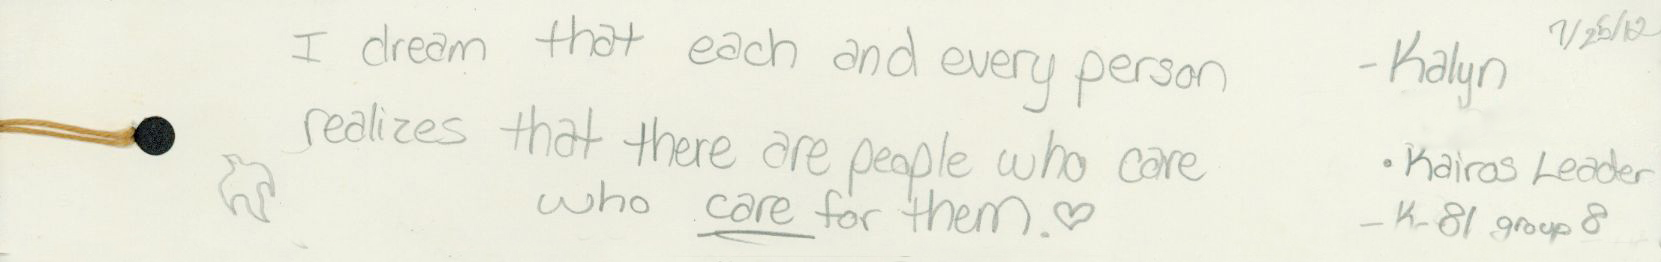 I dream that each and every person
realizes that there are people who care
who care for them. ♡
7/25/12
- Kalyn
• Kairos Leader
- K-81 group 8